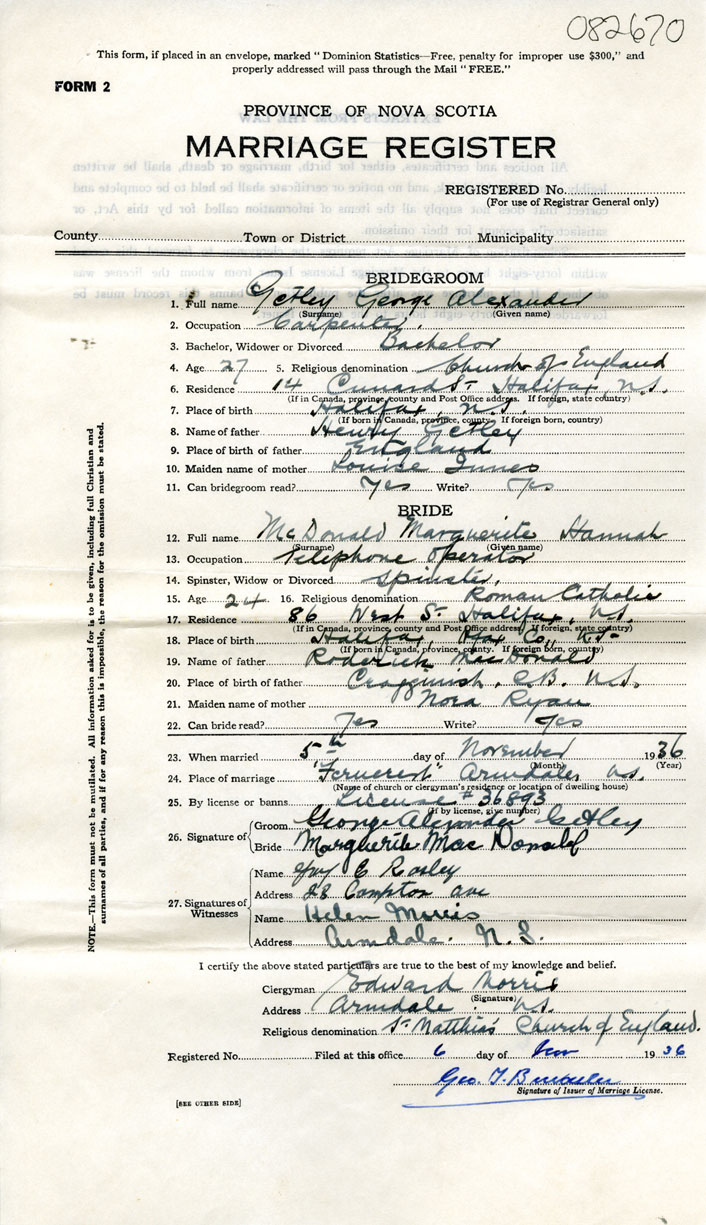 082670
This form, if placed in an envelope, marked "Dominion Statistics—Free, penalty for improper use $300," and
properly addressed will pass through the Mail "FREE."
FORM 2
PROVINCE OF NOVA SCOTIA
MARRIAGE REGISTER
REGISTERED No.
(For use of Registrar General only)
County Town or District Municipality
BRIDEGROOM
1. Full name Getley George Alexander
(Surname) (Given name)
2. Occupation Carpenter.
3. Bachelor, Widower or Divorced Bachelor
4. Age 27 5. Religious denomination Church of England
6. Residence 14 Cunard St Halifax, N.S.
(If in Canada, province, county and Post Office address. If foreign, state country)
7. Place of birth Halifax, N.S.
(If born in Canada, province, county. If foreign born, country)
8. Name of father Henry Getley
9. Place of birth of father England
10. Maiden name of mother Louise Innes
11. Can bridegroom read? Yes Write? Yes
BRIDE
12. Full name McDonald Marguerite Hannah
(Surname) (Given name)
13. Occupation Telephone operator
14. Spinster, Widow or Divorced Spinster.
15. Age 24 16. Religious denomination Roman Catholic
17. Residence 86 West St. Halifax, N.S.
(If in Canada, province, county and Post Office address. If foreign, state country)
18. Place of birth Halifax, Hfax Co., N.S.
(If born in Canada, province, county. If foreign born, country)
19. Name of father Roderick MacDonald
20. Place of birth of father C.B. N.S.
21. Maiden name of mother Nora Ryan
22. Can bride read? Yes Write? Yes
23. When married 5th day of November 1936
(Month) (Year)
24. Place of marriage Armdale, N.S.
(Name of church or clergyman's residence or location of dwelling house)
25. By license or banns License # 36893
(If by license, give number)
26. Signature of Groom George Alexander Getley
Bride Marguerite MacDonald
27. Signatures of Witnesses
Name Guy E
Address 28 Compton Ave
Name Helen Morris
Address Armdale. N.S.
I certify the above stated particulars are true to the best of my knowledge and belief.
Clergyman Edward Morris
(Signature)
Address Armdale. N.S.
Religious denomination St Matthias Church of England.
Registered No. Filed at this office 6 day of Nov 1936
Geo. T.
Signature of Issuer of Marriage License.
[SEE OTHER SIDE]
NOTE.—This form must not be mutilated. All information asked for is to be given, including full Christian and
surnames of all parties, and if for any reason this is impossible, the reason for the omission must be stated.